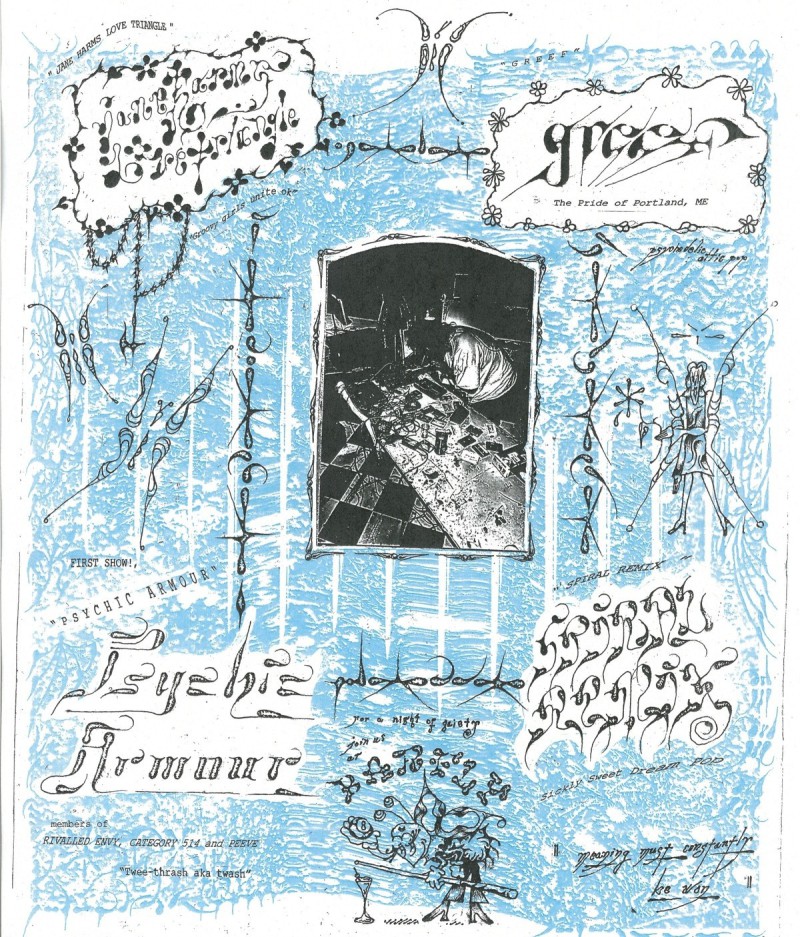 "JANE HARMS LOVE TRIANGLE"
jane harms
love triangle
"Groovy girls unite ok"
"GREEF"
greef
The Pride of Portland, ME
psychedelic
attic pop
FIRST SHOW!,
"PSYCHIC ARMOUR"
Psychic
Armour
members of
RIVALLED ENVY, CATEGORY 514 and PEEVE
"Twee-thrash aka twash"
For a night of gaiety
join us
at
"SPIRAL REMIX"
spiral
remix
Sickly Sweet Dream POP
" meaning must constantly
be won "